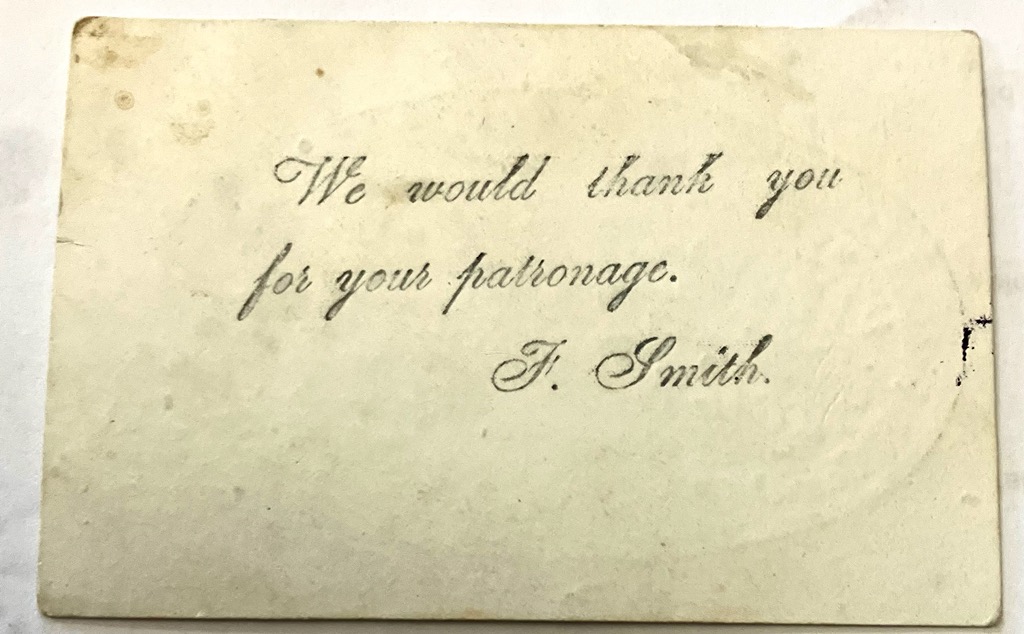 We would thank you
for your patronage.
F. Smith.